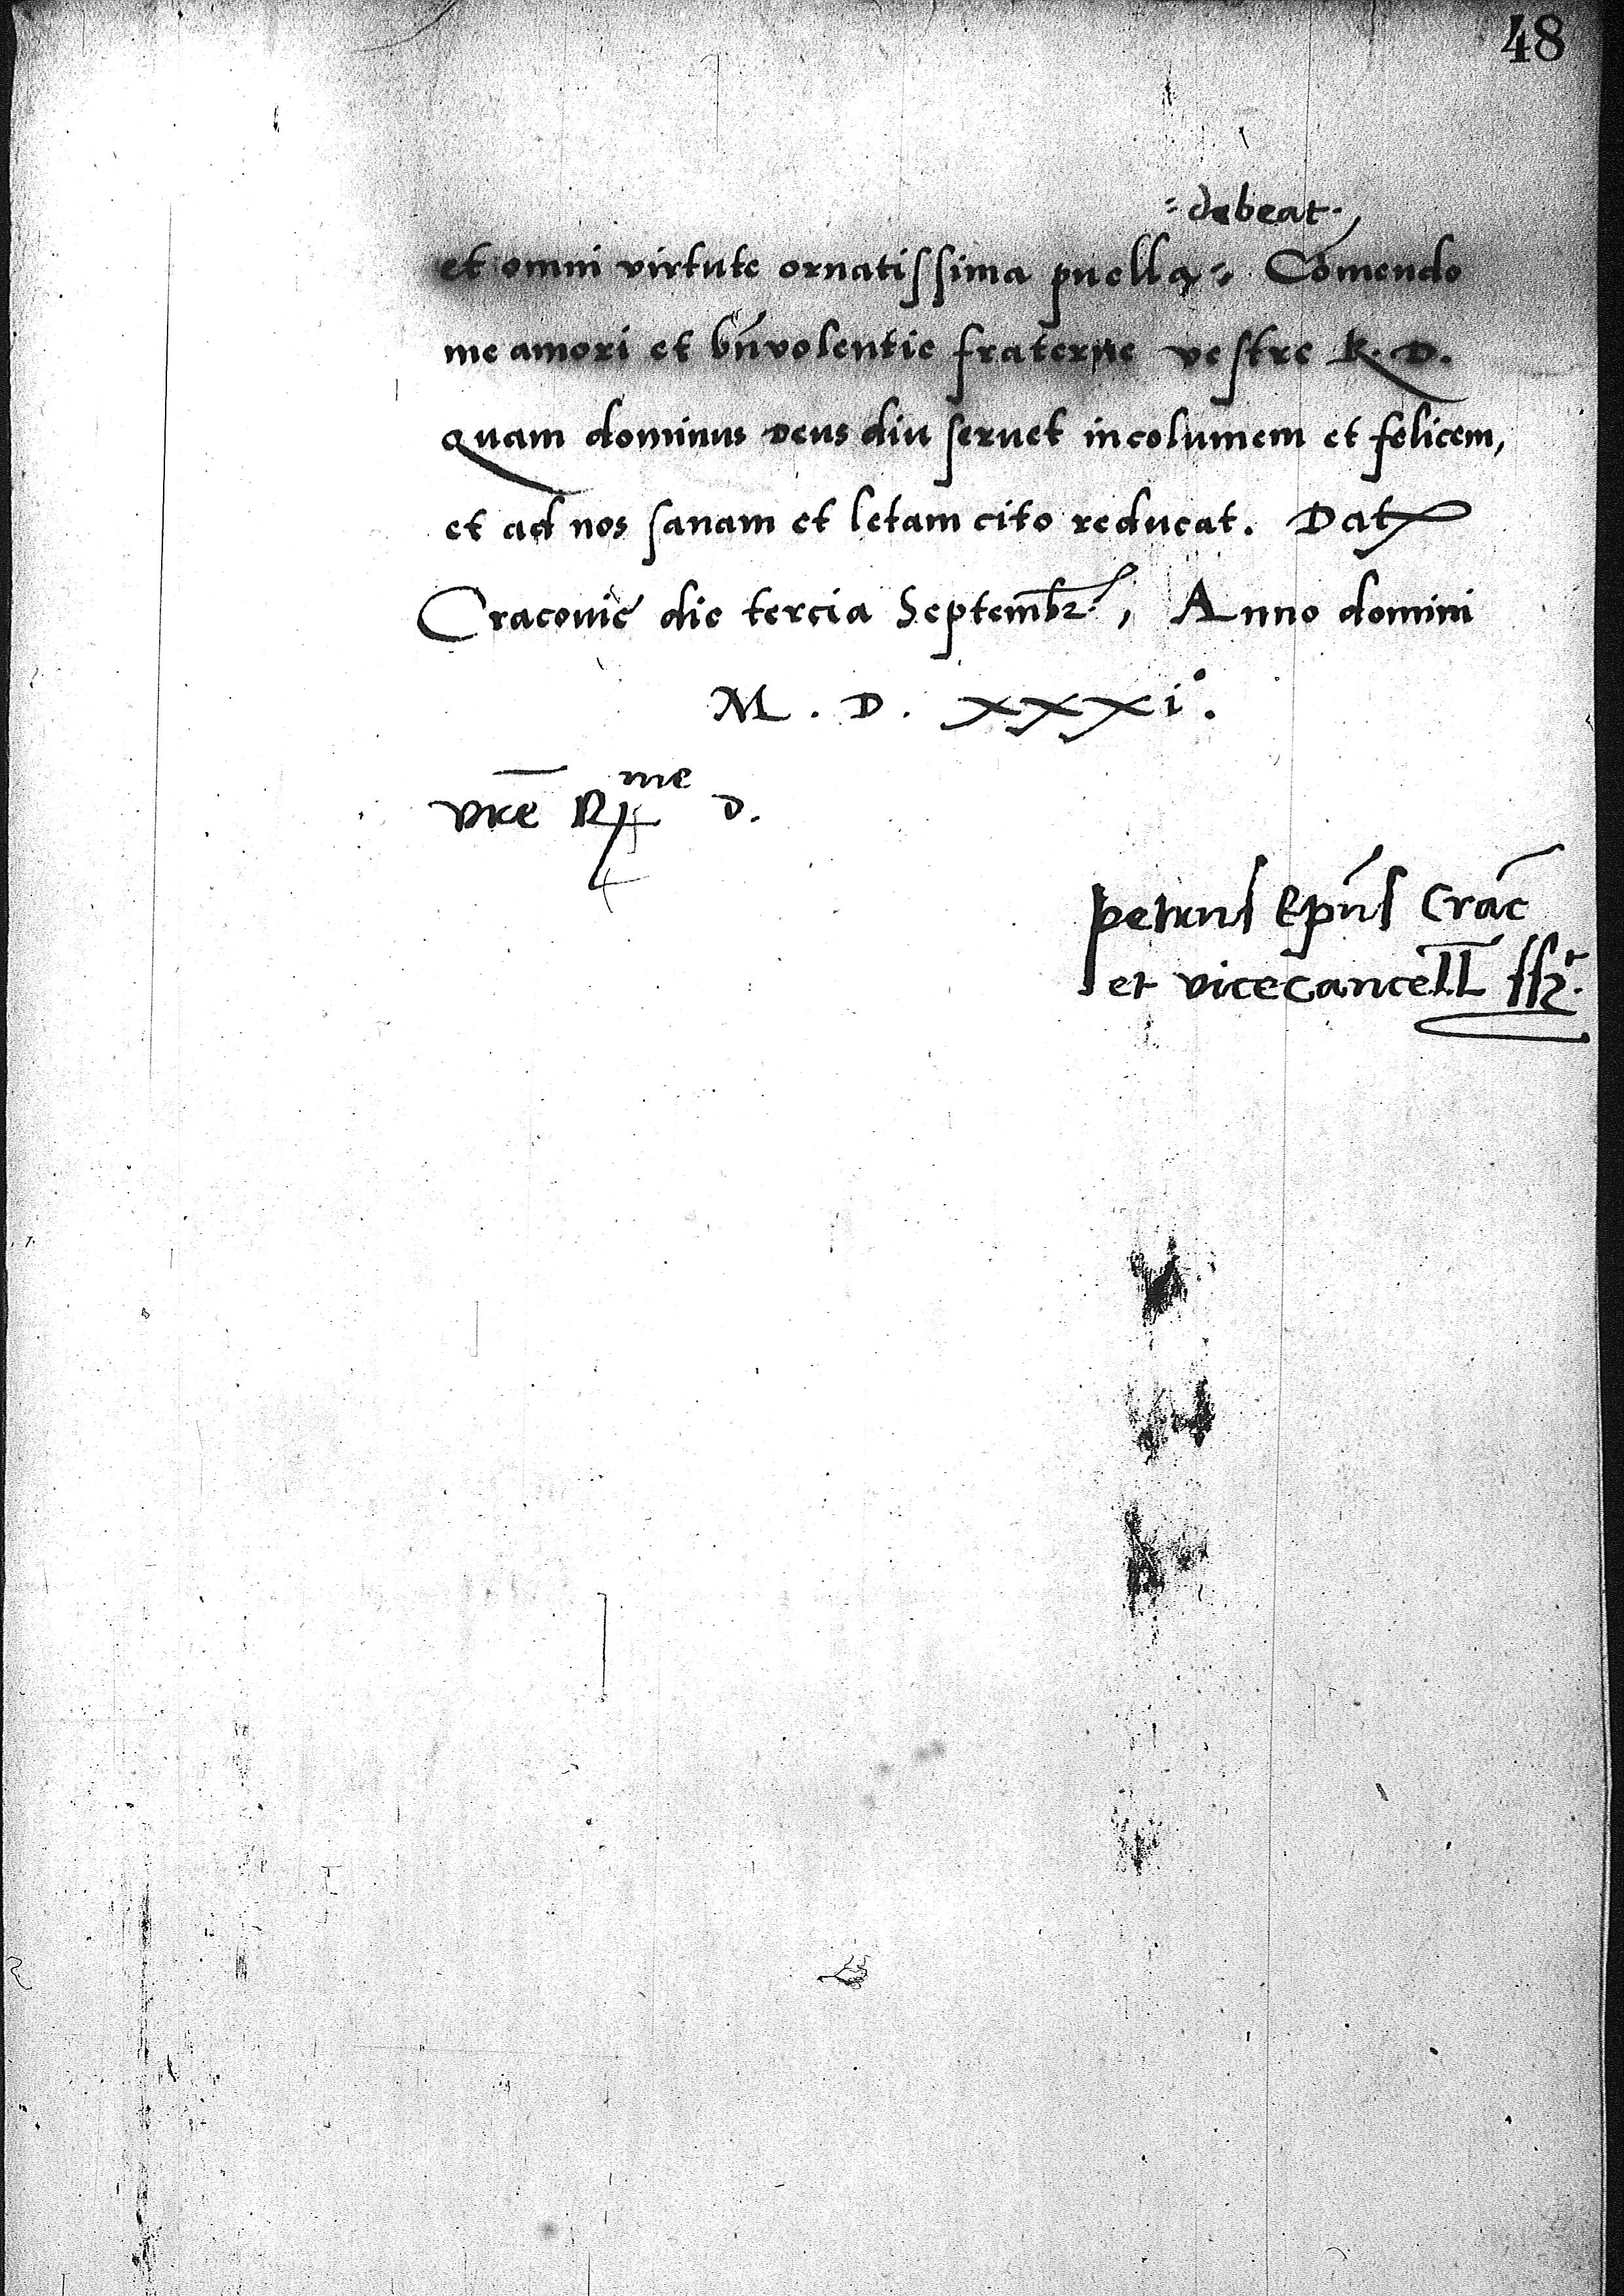 48
=debeat.,
et omni virtute ornatissima puella= Com̄endo
me amori et bn̄volentie fraterne vestre R. D.
Quam dominus Deus diu servet incolumem et felicem,
et ad nos sanam et letam cito reducat. Dat
Cracovie die tercia Septembr., Anno domini
M. D. xxxi°.
vr̄e R me D.
petrus Ep̄us Crac̄
et vicecancell̄ ssr.